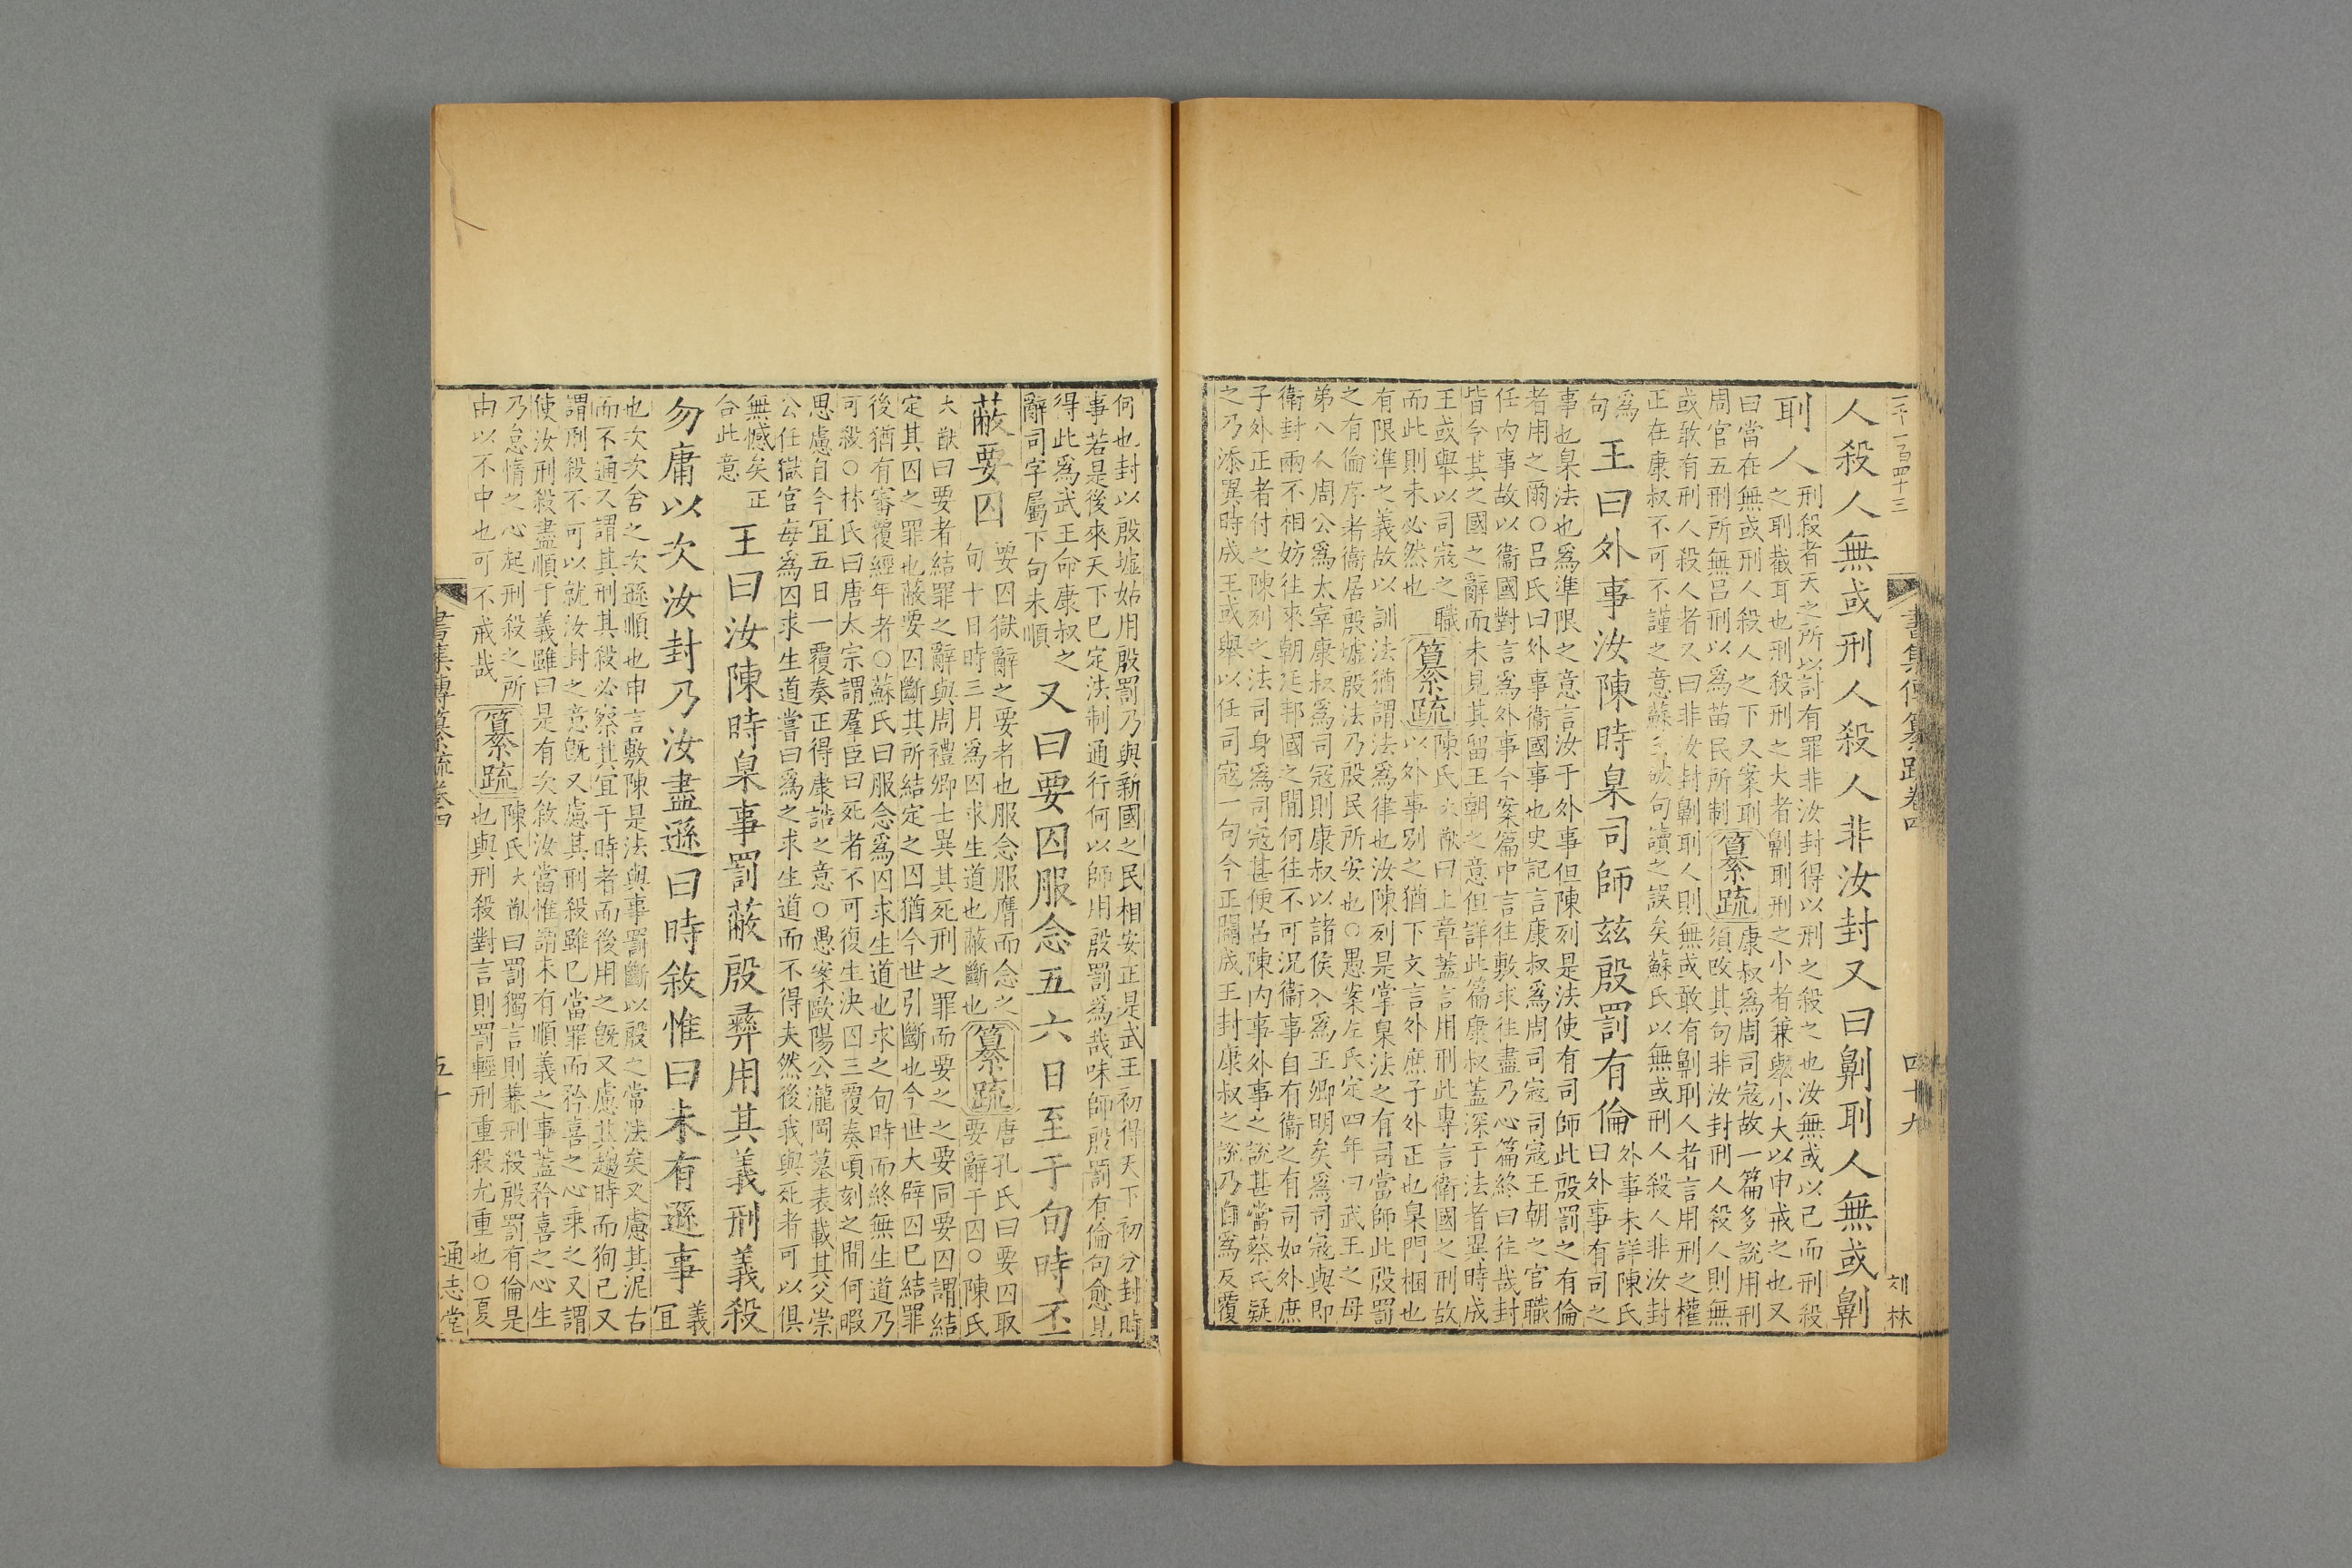 二千一百四十三
書集傳纂疏卷四
四十九
刘林
人殺人無或刑人殺人非汝封又曰劓刵人無或劓
刵人
刑殺者天之所以討有罪非汝封得以刑之殺之也汝無或以己而刑殺
之刵截耳也刑殺刑之大者劓刵刑之小者兼舉小大以申戒之也又
曰當在無或刑人殺人之下又案刵
周官五刑所無呂刑以爲苗民所制
纂疏
康叔爲周司寇故一篇多說用刑
須改其句非汝封刑人殺人則無
或敢有刑人殺人者又曰非汝封劓刵人則無或敢有劓刵人者言用刑之權
正在康叔不可不謹之意蘇氏破句讀之誤矣蘇氏以無或刑人殺人非汝封
爲
句
王曰外事汝陳時臬司師茲殷罰有倫
外事未詳陳氏
曰外事有司之
事也臬法也爲準限之意言汝于外事但陳列是法使有司師此殷罰之有倫
者用之爾○呂氏曰外事衞國事也史記言康叔爲周司寇司寇王朝之官職
任內事故以衞國對言爲外事今案篇中言往敷求往盡乃心篇終曰往哉封
皆今其之國之辭而未見其留王朝之意但詳此篇康叔蓋深于法者異時成
王或舉以司寇之職
而此則未必然也
纂疏
陳氏大猷曰上章蓋言用刑此專言衞國之刑故
以外事別之猶下文言外庶子外正也臬門梱也
有限準之義故以訓法猶謂法爲律也汝陳列是掌臬法之有司當師此殷罰
之有倫序者衞居殷墟殷法乃殷民所安也○愚案左氏定四年曰武王之母
弟八人周公爲太宰康叔爲司寇則康叔以諸侯入爲王卿明矣爲司寇與即
衞封兩不相妨往來朝廷邦國之閒何往不可況衞事自有衞之有司如外庶
子外正者付之陳列之法司身爲司寇甚便呂陳內事外事之說甚當蔡氏疑
之乃添異時成王或舉以任司寇一句今正闢成王封康叔之說乃自爲反覆
何也封以殷墟姑用殷罰乃與新國之民相安正是武王初得天下初分封時
事若是後來天下已定法制通行何以師用殷罰爲哉味師殷罰有倫句愈見
得此爲武王命康叔之
辭司字屬下句未順
又曰要囚服念五六日至于旬時丕
蔽要囚
要囚獄辭之要者也服念服膺而念之
旬十日時三月爲囚求生道也蔽斷也
纂疏
唐孔氏曰要囚取
要辭于囚○陳氏
大猷曰要者結罪之辭與周禮鄉士異其死刑之罪而要之之要同要囚謂結
定其囚之罪也蔽要囚斷其所結定之囚猶今世引斷也今世大辟囚已結罪
後猶有審覆經年者○蘇氏曰服念爲囚求生道也求之旬時而終無生道乃
可殺○林氏曰唐太宗謂羣臣曰死者不可復生決囚三覆奏頃刻之閒何暇
思慮自今宜五日一覆奏正得康誥之意○愚案歐陽公瀧岡墓表載其父崇
公任獄官每爲囚求生道嘗曰爲之求生道而不得夫然後我與死者可以俱
無憾矣正
合此意
王曰汝陳時臬事罰蔽殷彝用其義刑義殺
勿庸以次汝封乃汝盡遜曰時敘惟曰未有遜事
義
宜
也次次舍之次遜順也申言敷陳是法與事罰斷以殷之常法矣又慮其泥古
而不通又謂其刑其殺必察其宜于時者而後用之旣又慮其趨時而徇己又
謂刑殺不可以就汝封之意旣又慮其刑殺雖已當罪而矜喜之心乘之又謂
使汝刑殺盡順于義雖曰是有次敘汝當惟謂未有順義之事蓋矜喜之心生
乃怠惰之心起刑殺之所
由以不中也可不戒哉
纂疏
陳氏大猷曰罰獨言則兼刑殺殷罰有倫是
也與刑殺對言則罰輕刑重殺尤重也○夏
書集傳纂疏卷四
五十
通志堂